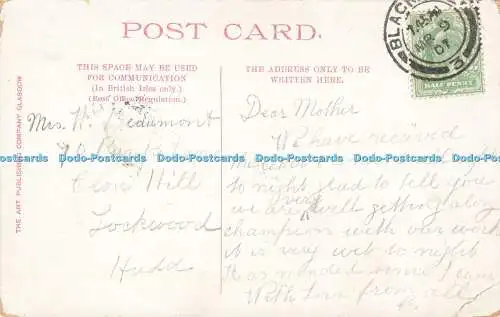 POST CARD.
THIS SPACE MAY BE USED
FOR COMMUNICATION
(In British Isles only.)
(Post Office Regulation.)
THE ADDRESS ONLY TO BE
WRITTEN HERE.
BLACK
MR 9
07
3
HALF PENNY
THE ART PUBLISHING COMPANY, GLASGOW
Mrs. H. Beaumont
Hill
Lockwood
Hudd
Dodo-Postcards Dodo-Postcards Dodo-Postcards Dodo-Postcards Dodo-Postcards Dodo-Postcards
Dear Mother
We have received
to night glad to tell you
we are very well getting along
champion with our work
it is very wet to night
it as rained since I came
With Love from all